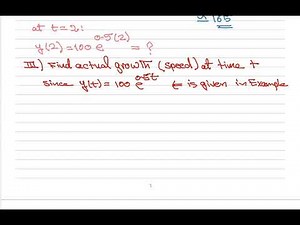 ≈ 165
at t=2:
y(2) = 100 e^0.5(2) = ?
III) Find actual growth (speed) at time t
since y(t) = 100 e^0.5t ← is given in Example